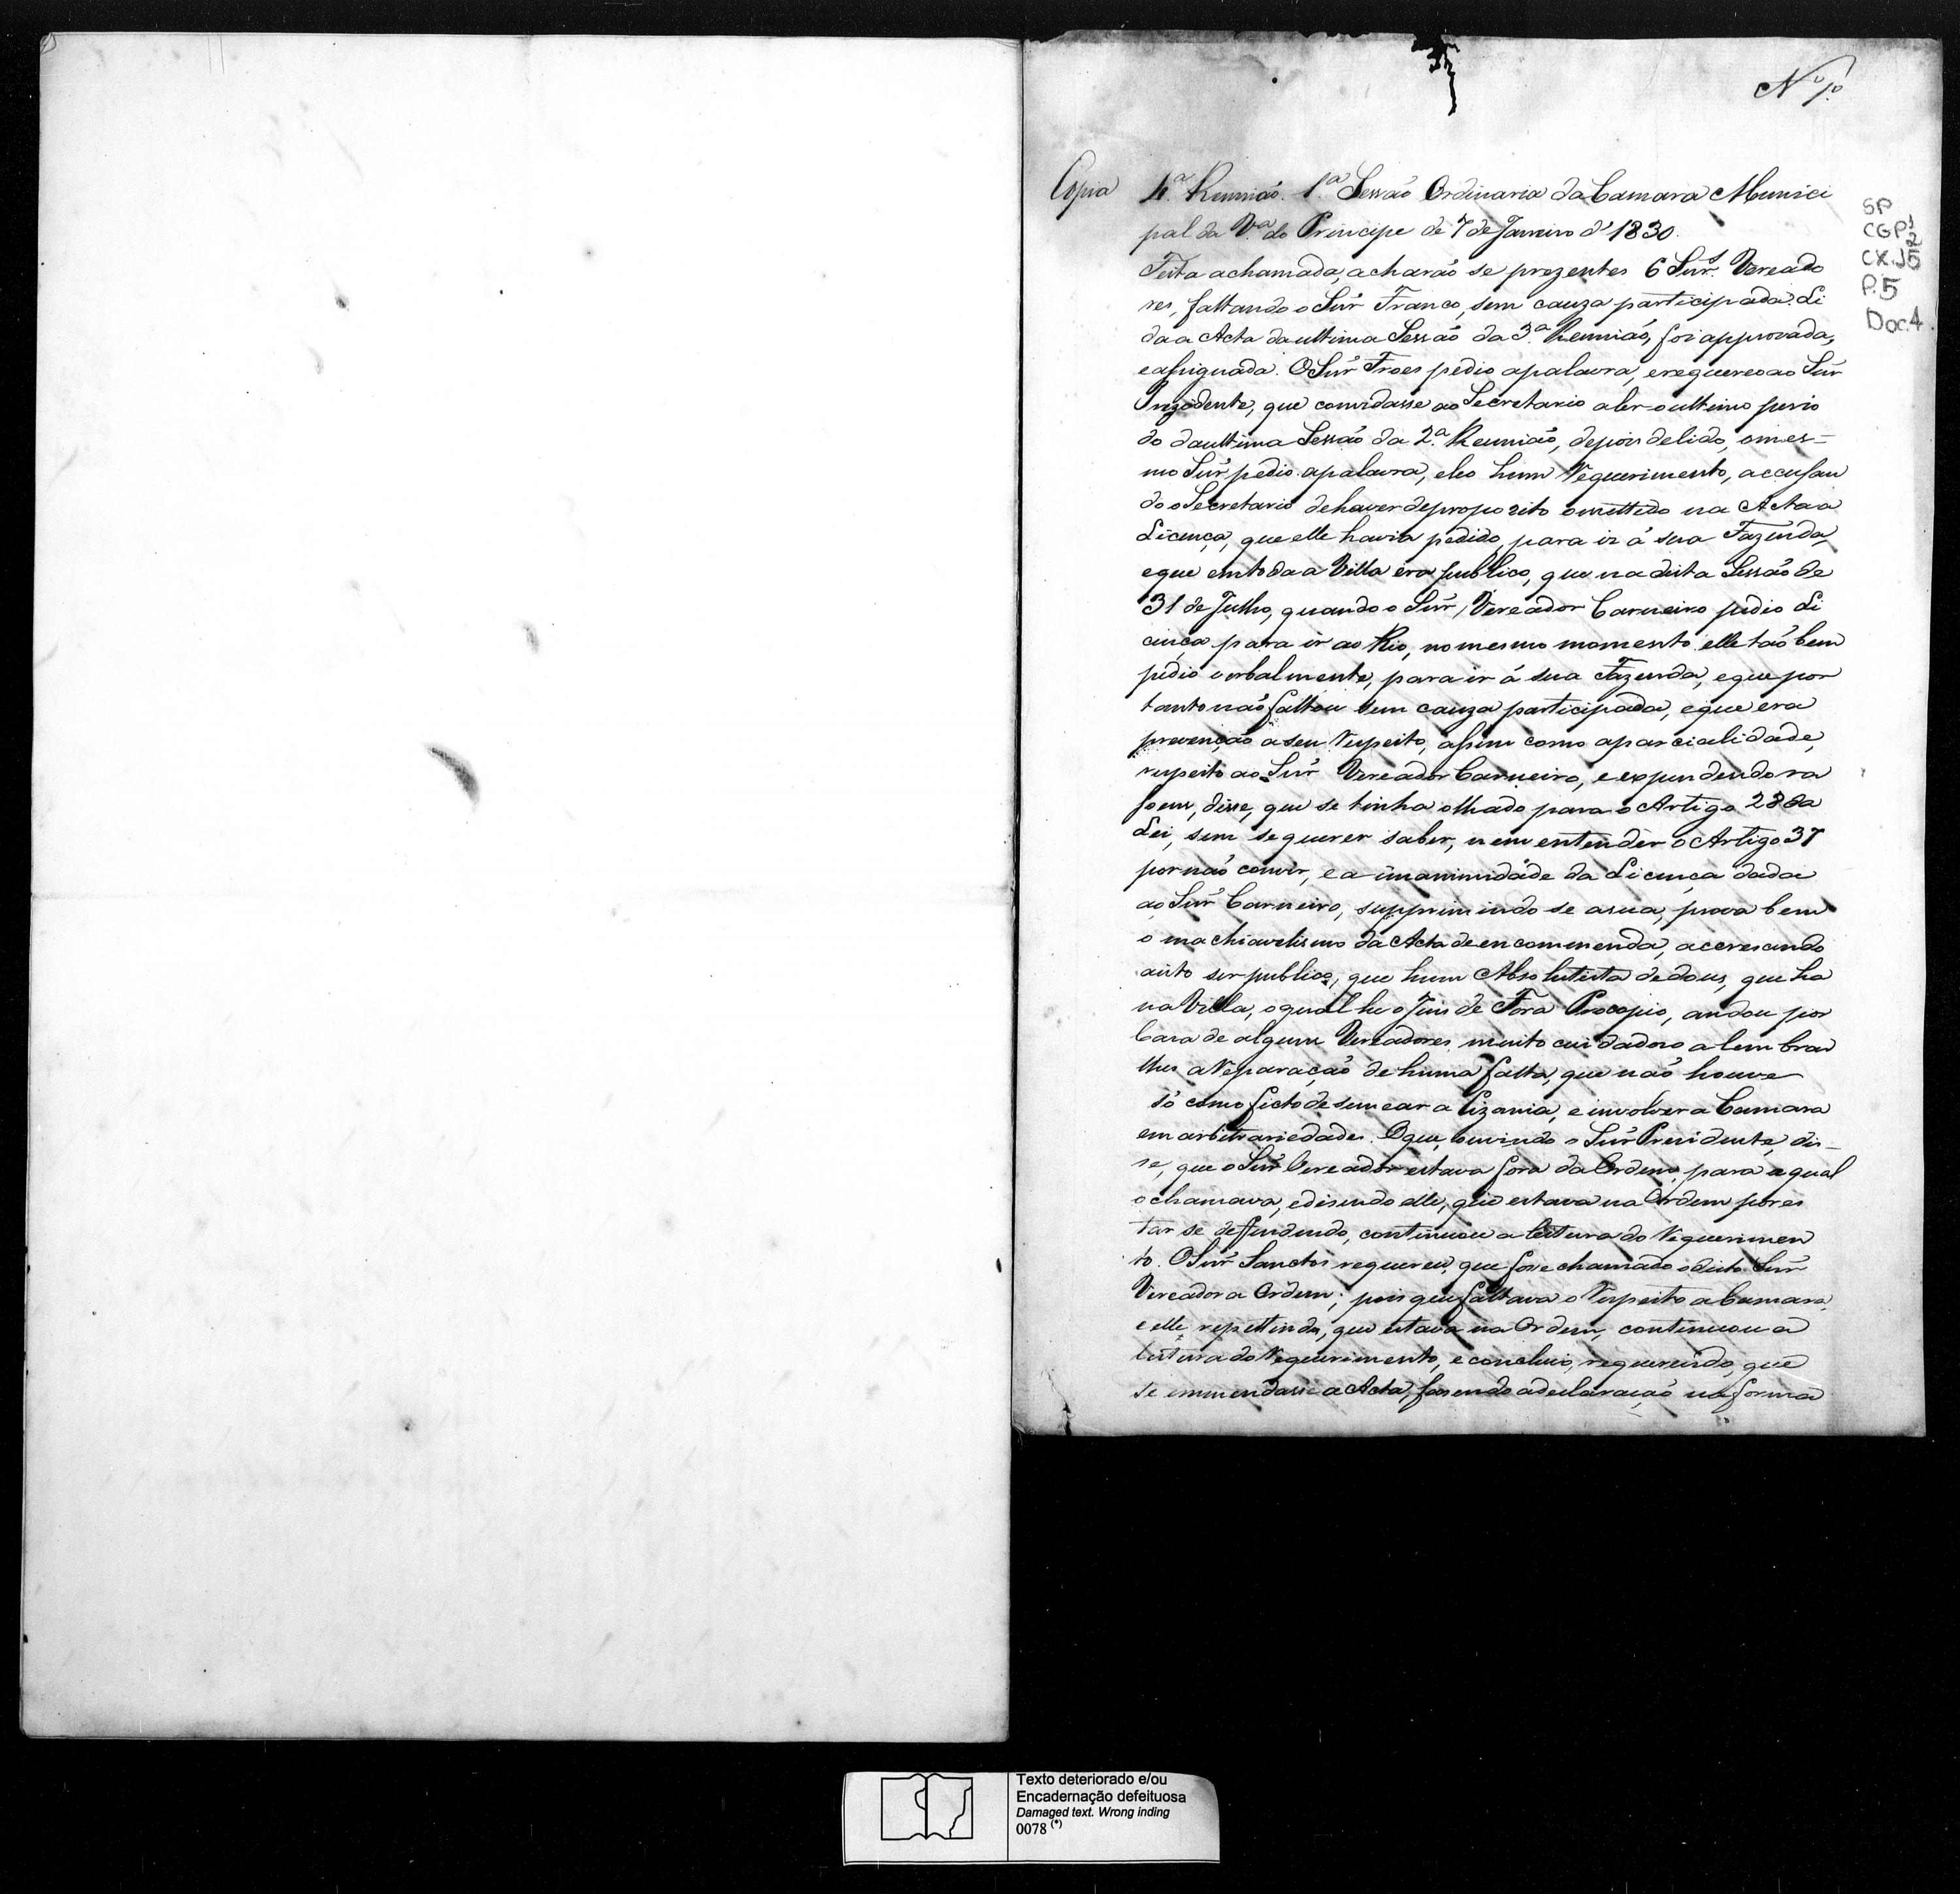 Nº 1º
Copia
4ª Reunião. 1ª Sessão Ordinaria da Camara Munici
pal da Vª do Principe de 7 de Janeiro d' 1830.
SP
CGP 1/2
CX. 5
P. 5
Doc. 4
Feita a chamada, acharão se prezentes 6 Surˢ. Vereado
res, faltando o Sur Franco, sem cauza participada. Li
da a Acta da ultima Sessão da 3ª Reunião, foi approvada,
e assignada. O Sur Froes pedio a palavra, e requereo ao Sur
Prezidente, que convidasse ao Secretario a ler o ultimo perio
do da ultima Sessão da 2ª Reunião, depois de lido, o mes=
mo Sur pedio a palavra, e leo hum Requerimento, accusan
do o Secretario de haver de proposito omittido na Acta a
Licença, que elle havia pedido, para ir á sua Fazenda,
e que em toda a Villa era publico, que na dita Sessão de
31 de Julho, quando o Sur Vereador Carneiro pedio Li
cença para ir ao Rio, no mesmo momento elle tão bem
pedio verbalmente, para ir á sua Fazenda, e que por
tanto não faltou sem cauza participada, e que era
prevenção a seu respeito, assim como a parcialidade,
respeito ao Sur Vereador Carneiro, e expendendo ra
soens, disse, que se tinha olhado para o Artigo 28 da
Lei, sem se querer saber, nem entender o Artigo 37
por não convir, e a unanimidade da Licença dada
ao Sur Carneiro, supprimindo se a sua, prova bem
o machiavelismo da Acta de encommenda, accrescendo
a isto ser publico, que hum Absolutista de dous, que ha
na Villa, o qual he o Juis de Fora Procopio, andou por
Casa de alguns Vereadores muito cuidadoso a lembrar
lhes a reparação de huma falta, que não houve
só como ficto de semear a Cizania, e involver a Camara
em arbitrariedades. O que, ouvindo o Sur Presidente, dis=
se, que o Sur Vereador estava fora da Ordem, para a qual
o chamava, e disendo elle, que estava na Ordem por es
tar se defendendo, continuou a leitura do requerimen
to. O Sur Sanctos requereu, que fosse chamado o dito Sur
Vereador a Ordem; pois que faltava o respeito a Camara,
e elle repettindo, que estava na Ordem, continuou a
leitura do requerimento, e concluio, requerendo, que
se emmendasse a Acta, fasendo a declaração na forma
Texto deteriorado e/ou
Encadernação defeituosa
Damaged text. Wrong inding
0078 (*)